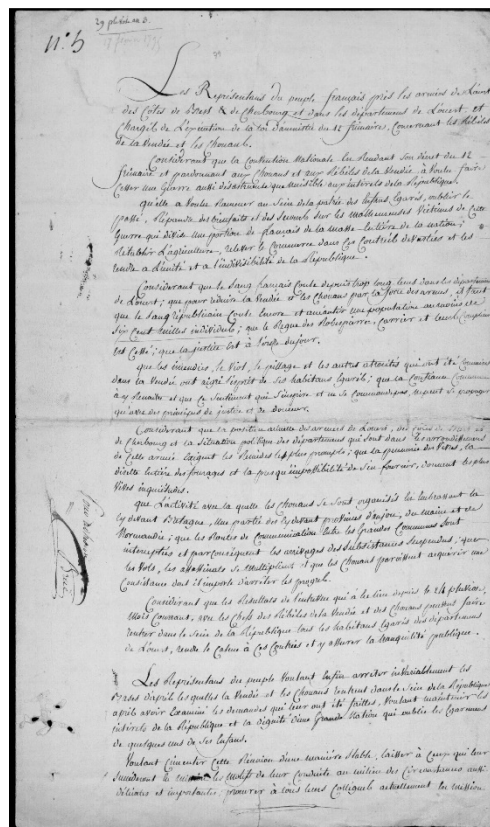 29 pluviose an 3.
17 février 1795
N.° 5
Les Représentans du peuple français près les armées de L'ouest
des Côtes de Brest & de Cherbourg et dans les départemens de L'ouest et
Chargés de L'exécution de la Loi d'amnistie du 12 frimaire, Concernant les Rébéles
de la Vendée et les Chouans.
Considérant que la Convention Nationale en Rendant son décret du 12
frimaire et pardonnant aux Chouans et aux Rébéles de la Vendée, a voulu faire
Cesser une Guerre aussi désastreuse que nuisible aux intérets de la République.
qu'elle a voulu Ramener au Sein de la patrie des Enfans égarés, oublier le
passé, Répandre des bienfaits et des Secours sur les malheureuses Victimes de Cette
Guerre qui divise une portion de français de la masse entière de la nation;
Rétablir L'agriculture, relever le Commerce dans Ces Contrées dévastées et les
rendre a L'unité et a l'indivisibilité de la République.
Considérant que le Sang français Coule depuis trop long tems dans les départemens
de L'ouest; que pour réduire la Vendée et les Chouans par la force des armes, il faut
que le Sang républicain Coule encore et anéantir une population au moins de
Six Cent milles individus; que le Règne des Robespierre, Carrier et leurs Complices
est Cessé; que la justice est à l'ordre du jour.
que les incendies, le Viol, le pillage et les autres atrocités qui ont été Commises
dans la Vendée ont aigri l'esprit de ses habitans égarés; que la Confiance Commence
à y Renaitre et que Ce Sentiment qui S'inspire et ne se Commande pas, ne peut se propager
qu'avec des principes de justice et de douceur.
Considérant que la position actuelle des armées de L'ouest, des Côtes de Brest et
de Cherbourg et la Situation politique des départemens qui sont dans les arrondissemens
de Cette armée Exigent les Remèdes les plus prompts; que la pénurie des Vivres, la
disette entière des fourages et la presqu'impossibilité de S'en fournir, donnent les plus
Vives inquiétudes.
que L'activité avec la quelle les Chouans se sont organisés en Embrassant la
Cy devant Bretagne, une partie des Cy devant provinces d'anjou, du maine et de
Normandie; que les Routes de Communication entre les Grandes Communes Sont
interceptées et par conséquent les arrivages des Subsistances Suspendus; que
les Vols, les assassinats se multiplient et que les Chouans paroissent acquérir une
Consistance dont il importe d'arrêter les progrès.
Considérant que les Résultats de l'entrevue qui a eu lieu depuis le 24 pluviose,
mois Courant, avec les Chefs des Rébéles de la Vendée et des Chouans peuvent faire
rentrer dans le Sein de la République tous les habitans égarés des départemens
de L'ouest, rendre le Calme à Ces Contrées et y assurer la tranquilité publique.
Les Représentans du peuple Voulant Enfin arrêter invariablement les
Bases d'après les quelles la Vendée et les Chouans rentrent dans le Sein de la République
après avoir Examiné les demandes qui leur ont été faites, Voulant maintenir les
intérets de la République et la dignité d'une Grande Nation qui oublie les Egaremens
de quelques uns de ses Enfans.
Voulant Cimenter Cette Réunion d'une manière Stable, laisser à Ceux qui leur
succéderont les motifs de leur Conduite au milieu des Circonstances aussi
délicates et importantes; procurer à tous leurs Collègues actuellement en mission